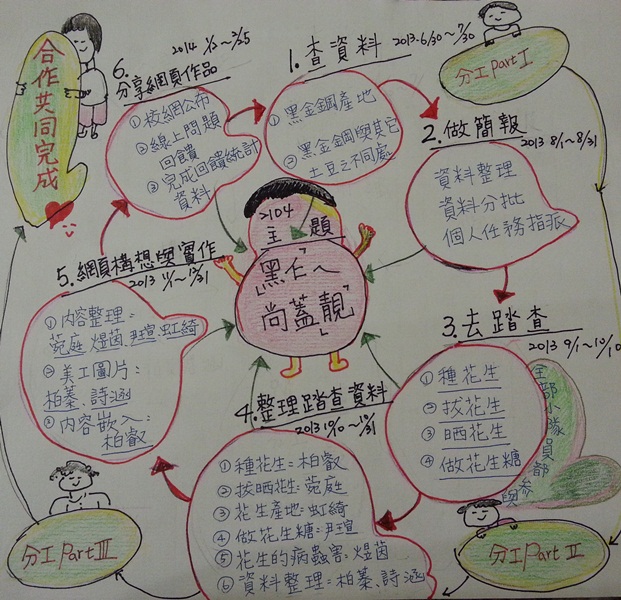 合作共同完成
6. 分享網頁作品
2014 1/2~2/25
① 校網公布
② 線上問題
回饋
③ 完成回饋統計
資料
1. 查資料
2013.6/30~7/30
① 黑金鋼產地
② 黑金鋼與其它
土豆之不同處
分工 Part I
2. 做簡報
2013 8/1~8/31
資料整理
資料分批
個人任務指派
>104
主題
「黑仁」ㄟ
「尚蓋靚」
3. 去踏查
2013 9/1~10/10
① 種花生
② 拔花生
③ 晒花生
④ 做花生糖
全部小隊員都參與
分工 Part II
4. 整理踏查資料
2013 10/10~10/31
① 種花生=柏叡
② 拔晒花生=菀庭
③ 花生產地=虹綺
④ 做花生糖=尹瑄
⑤ 花生的病蟲害=熳茵
⑥ 資料整理=柏蓁、詩涵
分工 Part III
5. 網頁構想與實作
2013 11/1~12/31
① 內容整理=
菀庭、熳茵、尹瑄、虹綺
② 美工圖片:
柏蓁、詩涵
③ 內容嵌入:
柏叡